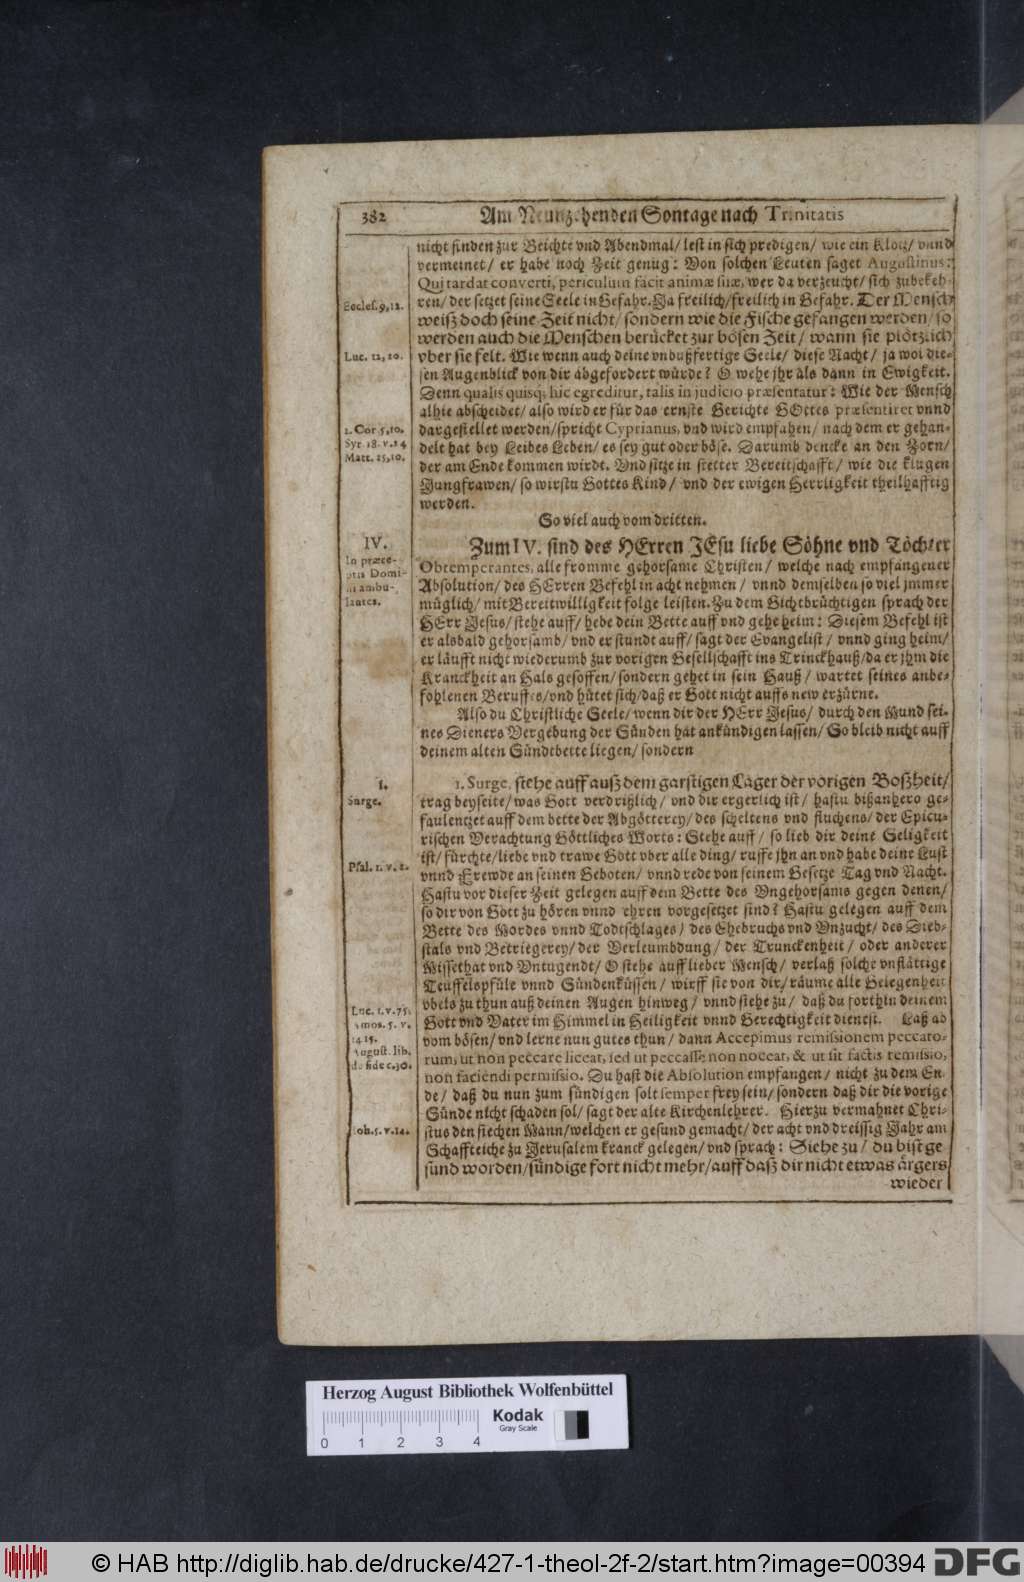 382 Am Neunzehenden Sontage nach Trinitatis
nicht finden zur Beichte vnd Abendmal/ lest in sich predigen/ wie ein Klotz/ vnnd
vermeinet/ er habe noch Zeit genug: Von solchen Leuten saget Augustinus:
Qui tardat converti, periculum facit animæ suæ, wer da verzeucht/ sich zubekeh-
ren/ der setzet seine Seele in Gefahr. Ja freilich/ freilich in Gefahr. Der Mensch
Eccles. 9, 12.
weiß doch seine Zeit nicht/ sondern wie die Fische gefangen werden/ so
werden auch die Menschen berücket zur bösen Zeit/ wann sie plötzlich
vber sie felt. Wie wenn auch deine vnbußfertige Seele/ diese Nacht/ ja wol die-
Luc. 12, 20.
sen Augenblick von dir abgefordert würde? O wehe jhr als dann in Ewigkeit.
Denn qualis quisq; hic egreditur, talis in judicio præsentatur: Wie der Mensch
alhie abscheidet/ also wird er für das ernste Gerichte GOttes præsentiret vnnd
dargestellet werden/ spricht Cyprianus, vnd wird empfahen/ nach dem er gehan-
2. Cor. 5, 10.
delt hat bey Leibes Leben/ es sey gut oder böse. Darumb dencke an den Zorn/
Syr. 18. v. 24
der am Ende kommen wirdt. Vnd sitze in stetter Bereitschafft/ wie die klugen
Matt. 25, 10.
Jungfrawen/ so wirstu Gottes Kind/ vnd der ewigen Herrligkeit theilhafftig
werden.
So viel auch vom dritten.
IV.
In præce-
ptis Domi-
ni ambu-
lantes.
Zum IV. sind des HErren JEsu liebe Söhne vnd Töchter
Obtemperantes, alle fromme gehorsame Christen/ welche nach empfangener
Absolution/ des HErren Befehl in acht nehmen/ vnnd demselben so viel jmmer
müglich/ mit Bereitwilligkeit folge leisten. Zu dem Gichtbrüchtigen sprach der
HErr Jesus/ stehe auff/ hebe dein Bette auff vnd gehe heim: Diesem Befehl ist
er alsbald gehorsamb/ vnd er stundt auff/ sagt der Evangelist/ vnnd ging heim/
er läufft nicht wiederumb zur vorigen Gesellschafft ins Trinckhauß/ da er jhm die
Kranckheit an Hals gesoffen/ sondern gehet in sein Hauß/ wartet seines anbe-
fohlenen Beruffes/ vnd hütet sich/ daß er Gott nicht auffs new erzürne.
Also du Christliche Seele/ wenn dir der HErr Jesus/ durch den Mund sei-
nes Dieners Vergebung der Sünden hat ankündigen lassen/ So bleib nicht auff
deinem alten Sündtbette liegen/ sondern
1.
Surge.
1. Surge, stehe auff auß dem garstigen Lager der vorigen Boßheit/
trag beyseite/ was Gott verdrißlich/ vnd dir ergerlich ist/ hastu bißanhero ge-
faulentzet auff dem bette der Abgötterey/ des scheltens vnd fluchens/ der Epicu-
rischen Verachtung Göttliches Worts: Stehe auff/ so lieb dir deine Seligkeit
ist/ fürchte/ liebe vnd trawe Gott vber alle ding/ ruffe jhn an vnd habe deine Lust
Psal. 1. v. 2.
vnnd Frewde an seinen Geboten/ vnnd rede von seinem Gesetze Tag vnd Nacht.
Hastu vor dieser Zeit gelegen auff dem Bette des Vngehorsams gegen denen/
so dir von Gott zu hören vnnd ehren vorgesetzet sind? Hastu gelegen auff dem
Bette des Mordes vnnd Todtschlages/ des Ehebruchs vnd Vnzucht/ des Dieb-
stals vnd Betriegerey/ der Verleumbdung/ der Trunckenheit/ oder anderer
Missethat vnd Vntugendt/ O stehe auff lieber Mensch/ verlaß solche vnflättige
Teuffelspfüle vnnd Sündenküssen/ wirff sie von dir/ räume alle Gelegenheit
vbels zu thun auß deinen Augen hinweg/ vnnd stehe zu/ daß du forthin deinem
Luc. 1. v. 75.
Gott vnd Vater im Himmel in Heiligkeit vnnd Gerechtigkeit dienest. Laß ab
Amos. 5. v.
14 15.
vom bösen/ vnd lerne nun gutes thun/ dann Accepimus remissionem peccato-
August. lib.
rum, ut non peccare liceat, sed ut peccasse non noceat, & ut sit factis remissio,
de fide c. 30.
non faciendi permissio. Du hast die Absolution empfangen/ nicht zu dem En-
de/ daß du nun zum sündigen solt semper frey sein/ sondern daß dir die vorige
Sünde nicht schaden sol/ sagt der alte Kirchenlehrer. Hierzu vermahnet Chri-
stus den siechen Mann/ welchen er gesund gemacht/ der acht vnd dreissig Jahr am
Joh. 5. v. 14.
Schaffteiche zu Jerusalem kranck gelegen/ vnd sprach: Siehe zu/ du bist ge
sund worden/ sündige fort nicht mehr/ auff daß dir nicht etwas ärgers
wieder
Herzog August Bibliothek Wolfenbüttel
0 1 2 3 4
Kodak
Gray Scale
© HAB http://diglib.hab.de/drucke/427-1-theol-2f-2/start.htm?image=00394
DFG